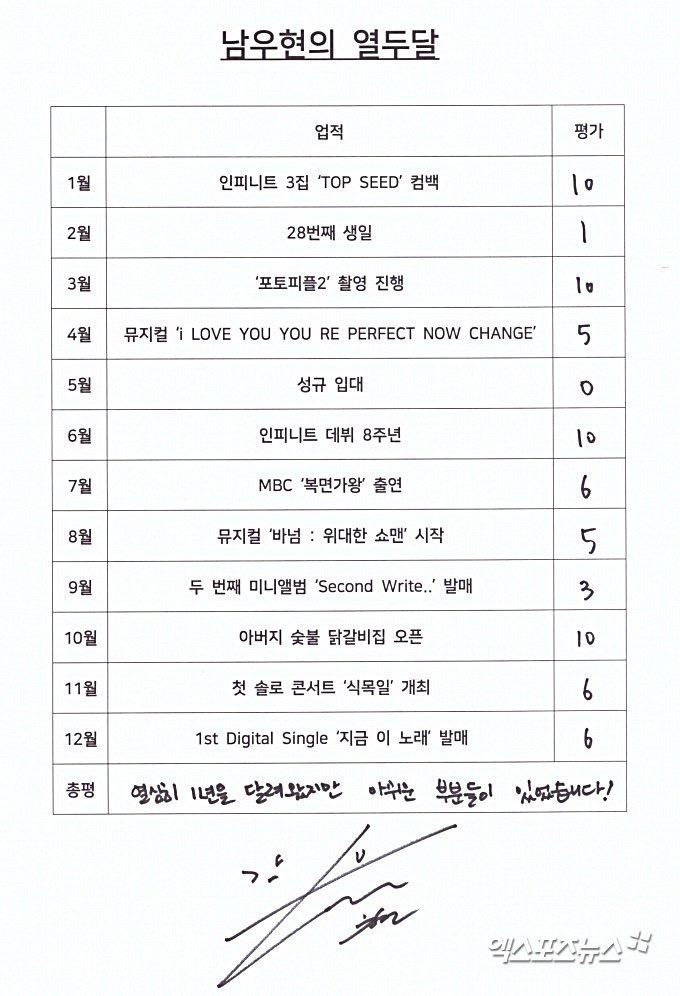 남우현의 열두달
업적 평가
1월 인피니트 3집 ‘TOP SEED’ 컴백 10
2월 28번째 생일 1
3월 ‘포토피플2’ 촬영 진행 10
4월 뮤지컬 ‘i LOVE YOU YOU RE PERFECT NOW CHANGE’ 5
5월 성규 입대 0
6월 인피니트 데뷔 8주년 10
7월 MBC ‘복면가왕’ 출연 6
8월 뮤지컬 ‘바넘 : 위대한 쇼맨’ 시작 5
9월 두 번째 미니앨범 ‘Second Write..’ 발매 3
10월 아버지 숯불 닭갈비집 오픈 10
11월 첫 솔로 콘서트 ‘식목일’ 개최 6
12월 1st Digital Single ‘지금 이 노래’ 발매 6
총평 열심히 1년을 달려왔지만 아쉬운 부분들이 있었습니다!
엑스포츠뉴스